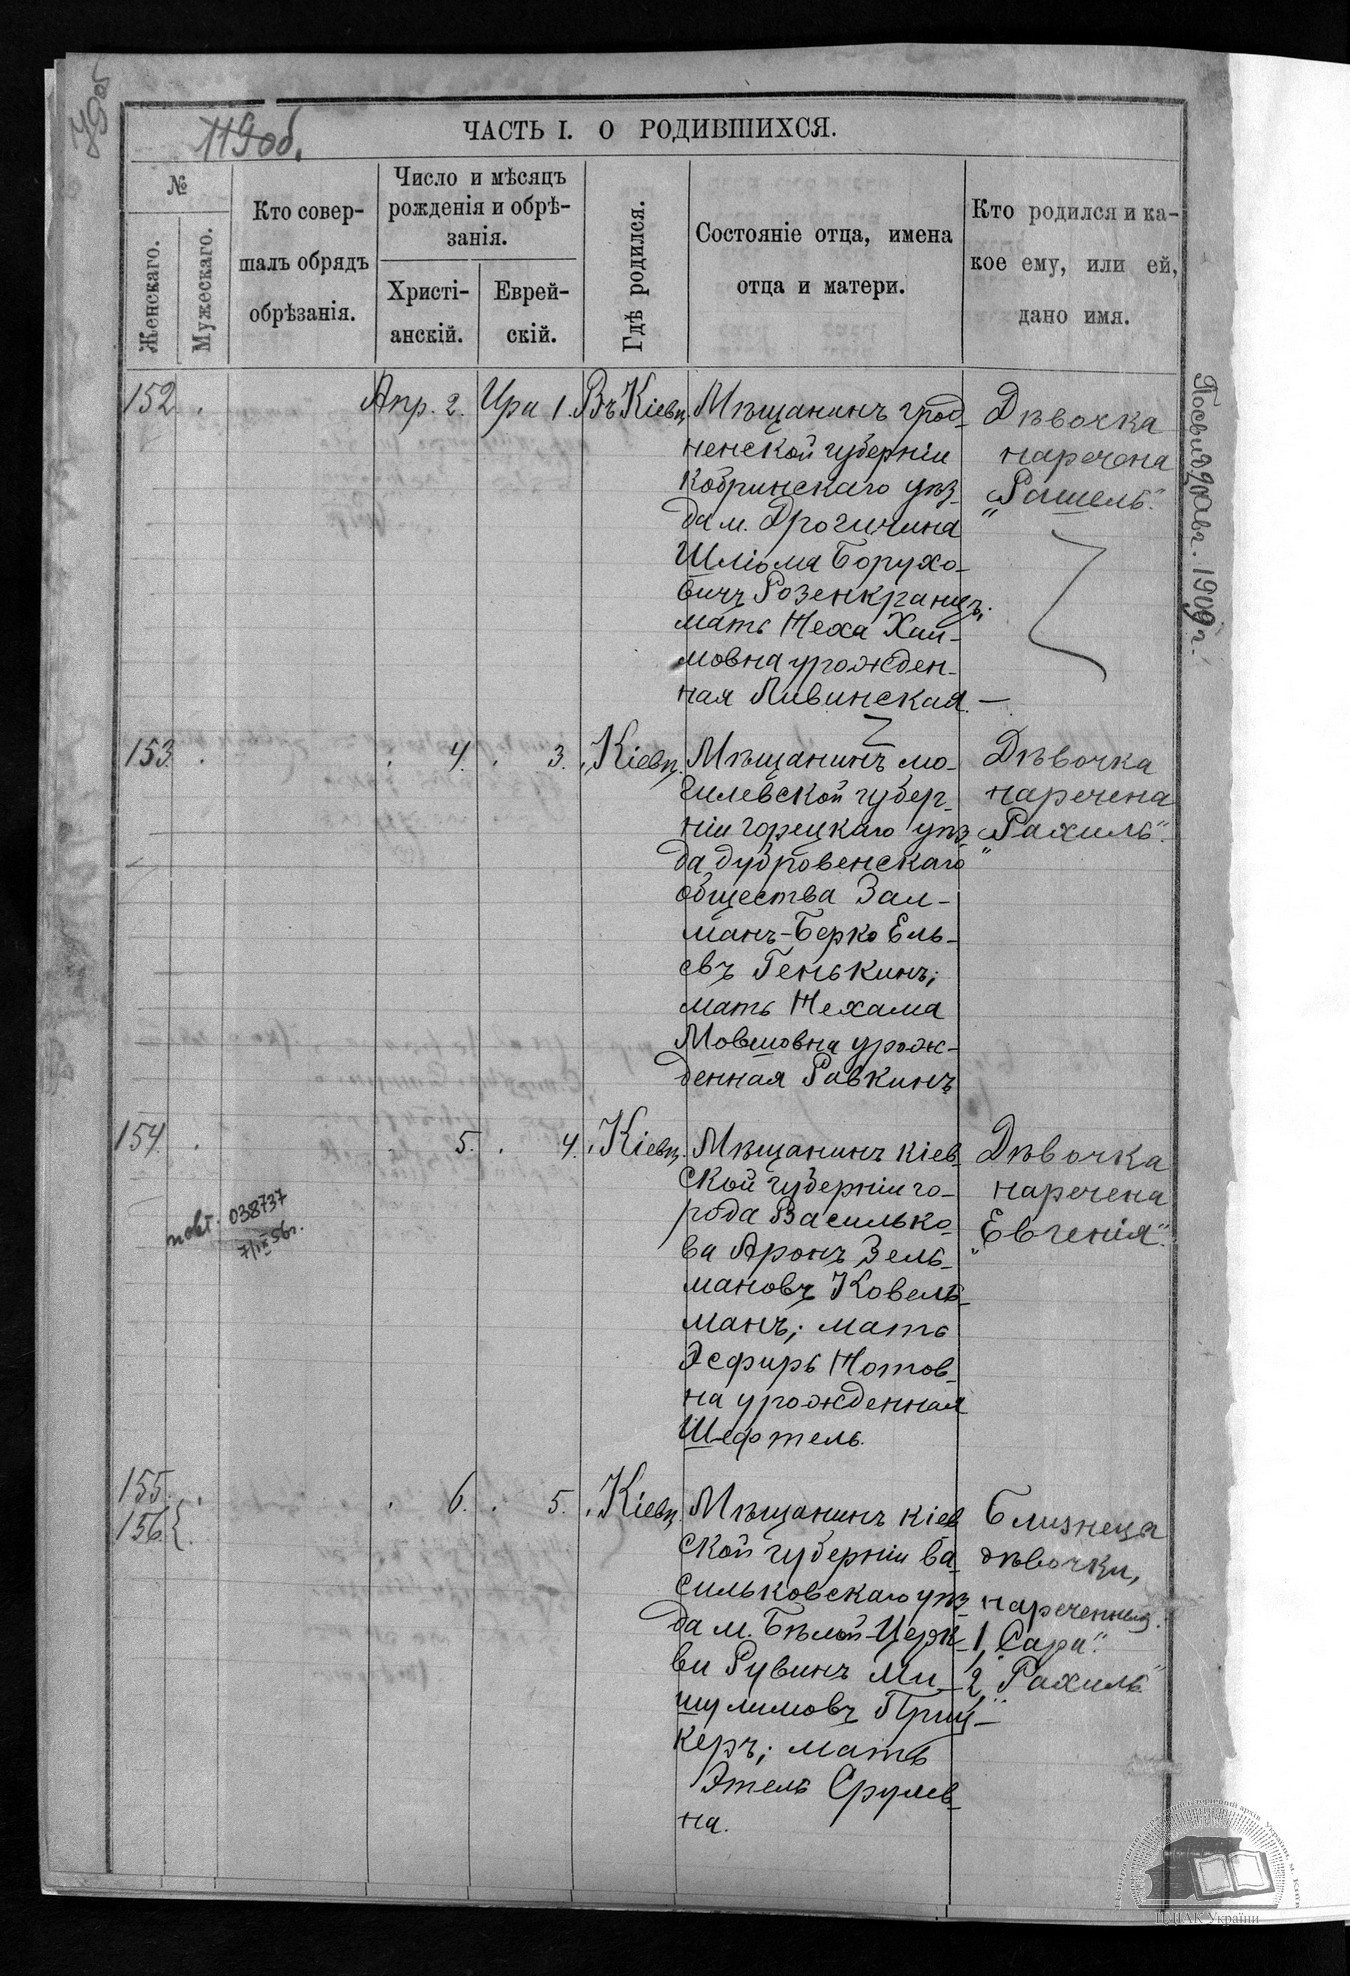 119 об.
ЧАСТЬ I. О РОДИВШИХСЯ.
№
Женскаго.
Мужескаго.
Кто совер-
шалъ обрядъ
обрѣзанія.
Число и мѣсяцъ
рожденія и обрѣ-
занія.
Христі-
анскій.
Еврей-
скій.
Гдѣ родился.
Состояніе отца, имена
отца и матери.
Кто родился и ка-
кое ему, или ей,
дано имя.
152 Апр. 2. Ира 1. Въ Кіевѣ
Мѣщанинъ грод-
ненской губерніи
Кобринскаго уѣз-
да м. Дрогичина
Шліома Борухо-
вичъ Розенкранцъ,
мать Неха Хаи-
мовна урожден-
ная Ливинская.
Дѣвочка
наречена
„Рашель".
153. 4. 3. „Кіевѣ.
Мѣщанинъ мо-
гилевской губер-
ніи горецкаго уѣз-
да дубровенскаго
общества Зал-
манъ-Берко Ель-
евъ Генькинъ;
мать Нехама
Мовшовна урож-
денная Равкинъ
Дѣвочка
наречена
„Рахиль".
154. 5. 4. „Кіевѣ.
Мѣщанинъ кіев-
ской губерніи го-
рода Василько-
ва Аронъ Зель-
мановъ Ковель-
манъ; мать
Эсфирь Нотов-
на урожденная
Шефтель.
Дѣвочка
наречена
„Евгенія".
038737
155.
156. 6. 5. „Кіевѣ.
Мѣщанинъ кіев
ской губерніи ва-
сильковскаго уѣз-
да м. Бѣлой-Церк-
ви Рувинъ Ми-
шулимовъ Приц-
керъ; мать
Этель Срулев-
на.
Близнеца
дѣвочки,
нареченныя:
1, „Сара".
2, „Рахиль"
1909 г.
ЦДІАК України